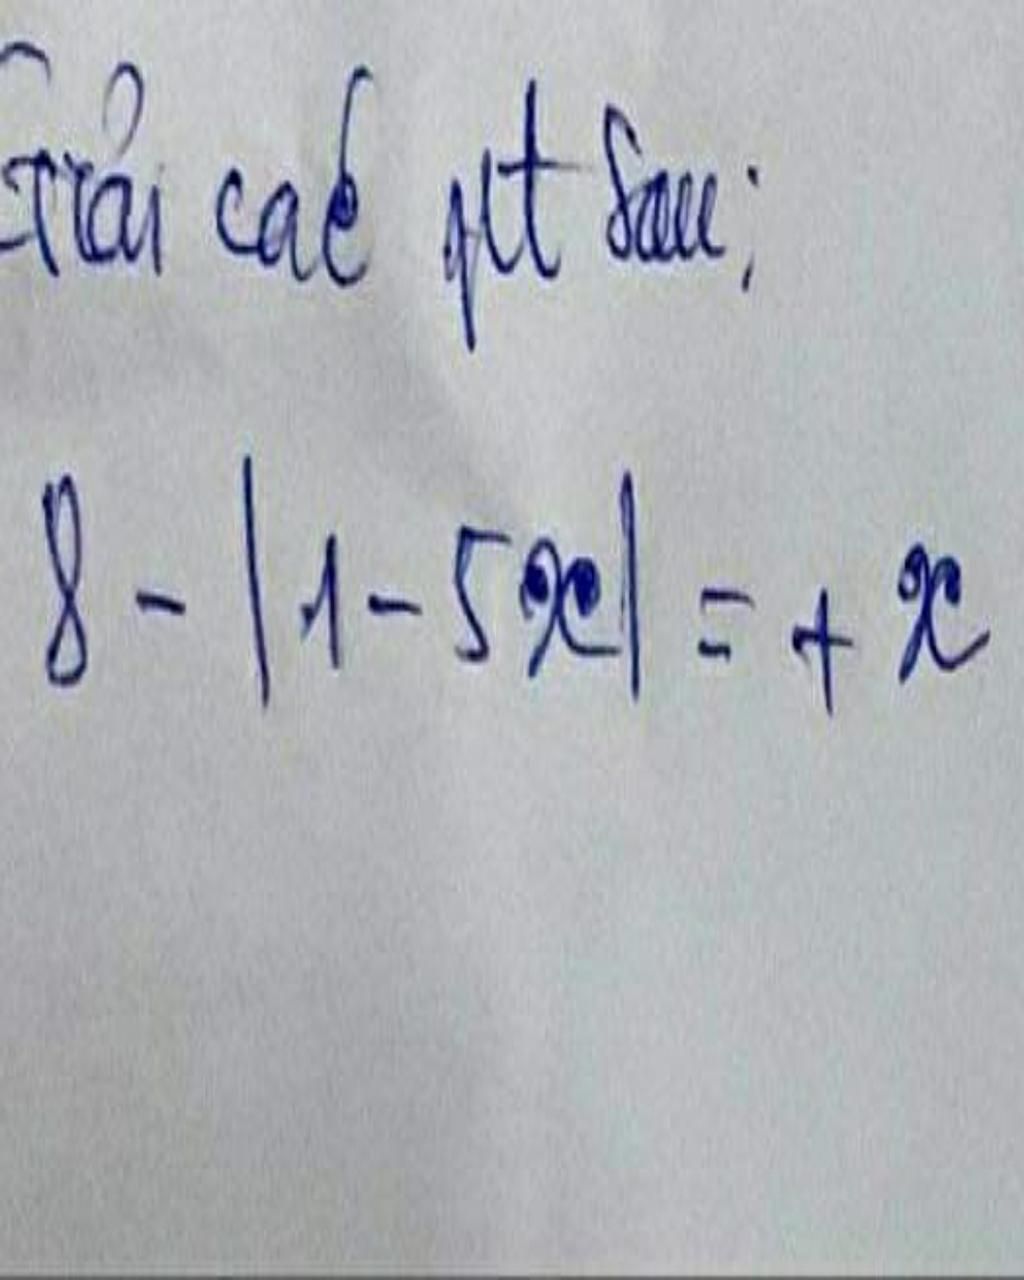 Giải các pt sau:
8 - |1 - 5x| = + x